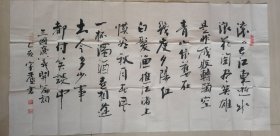 滚滚长江东逝水
浪花淘尽英雄
是非成败转头空
青山依旧在
几度夕阳红
白发渔樵江渚上
惯看秋月春风
一壶浊酒喜相逢
古今多少事
都付笑谈中